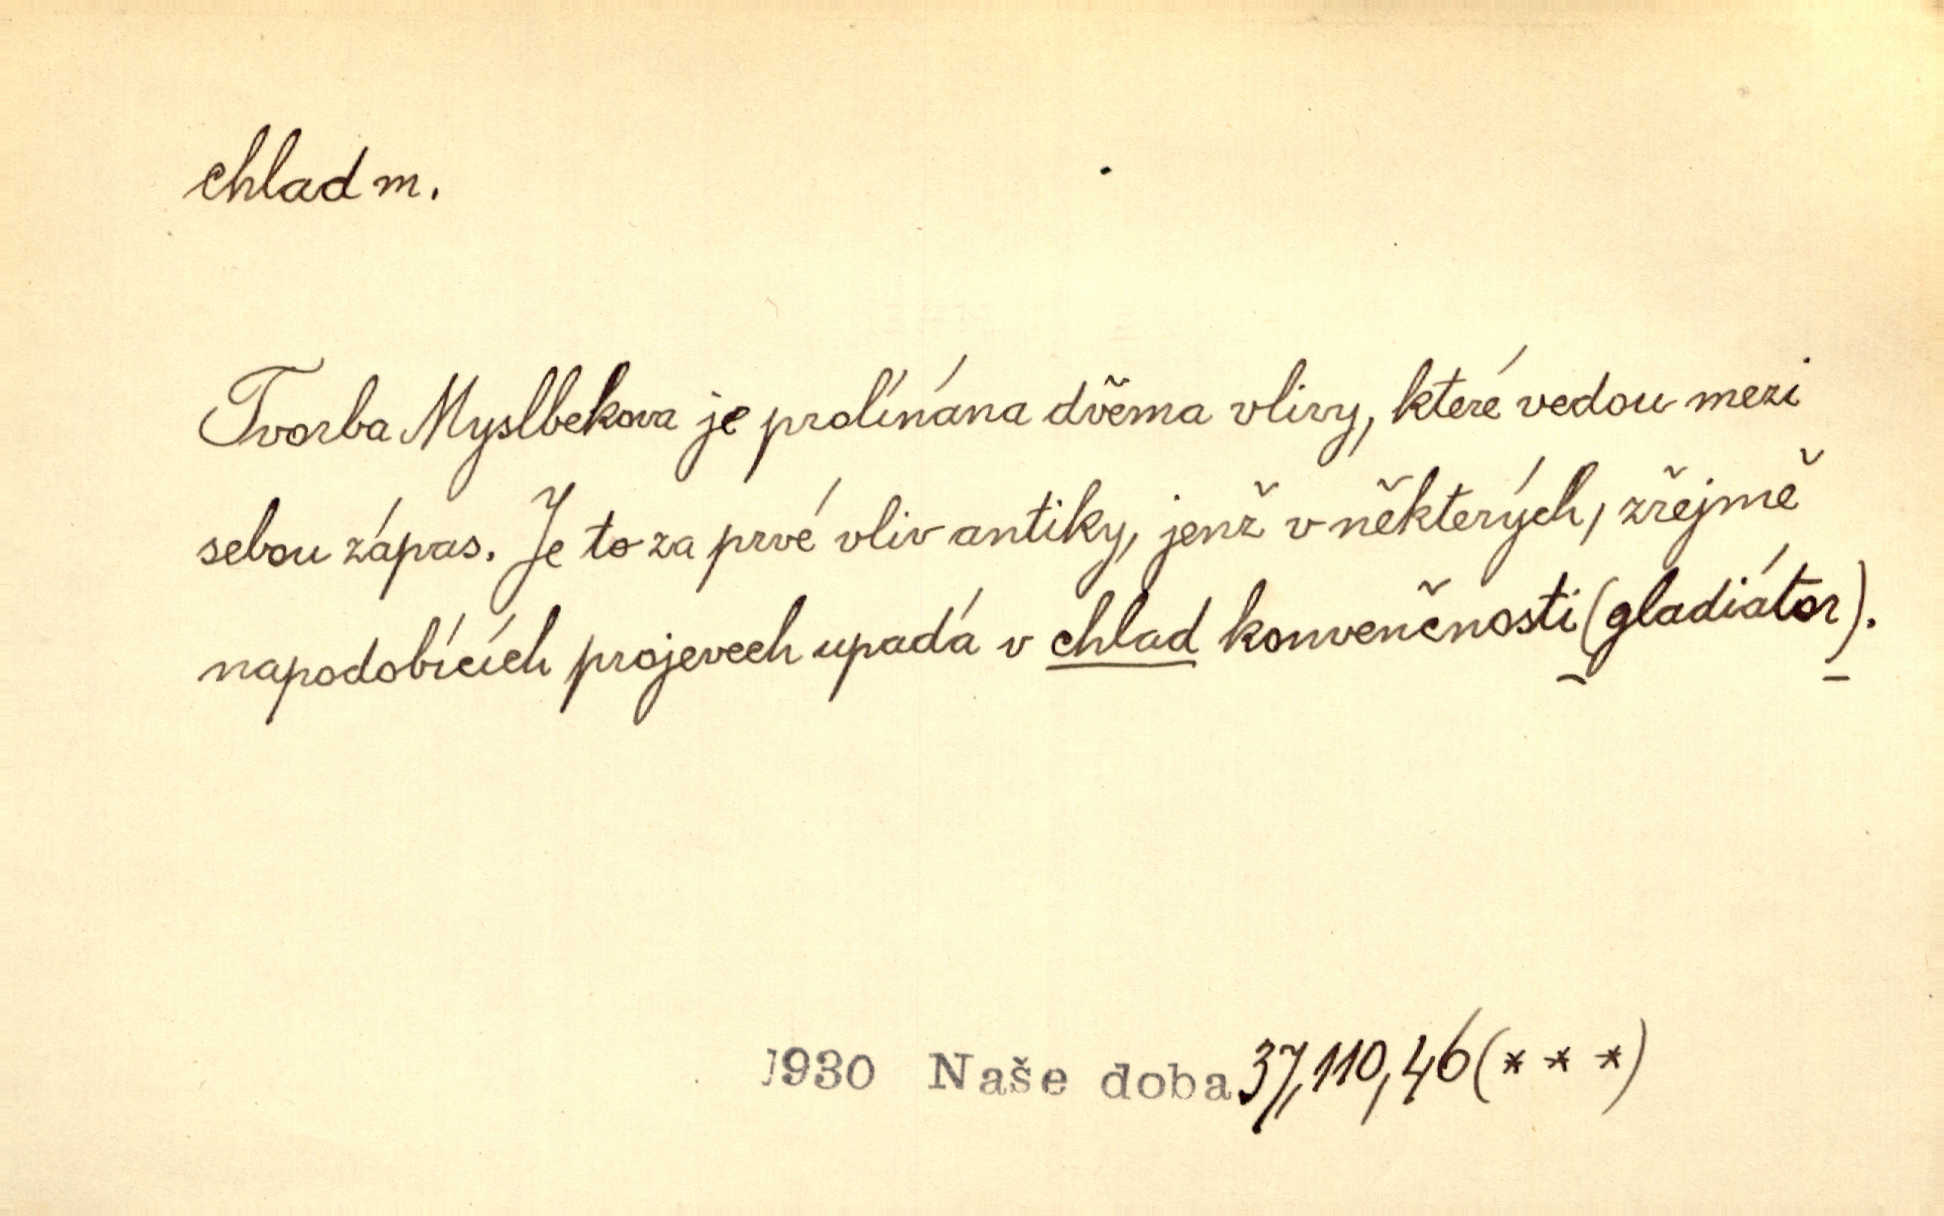 chlad m.
Tvorba Myslbekova je prolínána dvěma vlivy, které vedou mezi
sebou zápas. Je to za prvé vliv antiky, jenž v některých, zřejmě
napodobících projevech upadá v chlad konvenčnosti (gladiátor).
1930 Naše doba 37, 110, 46 (* * *)